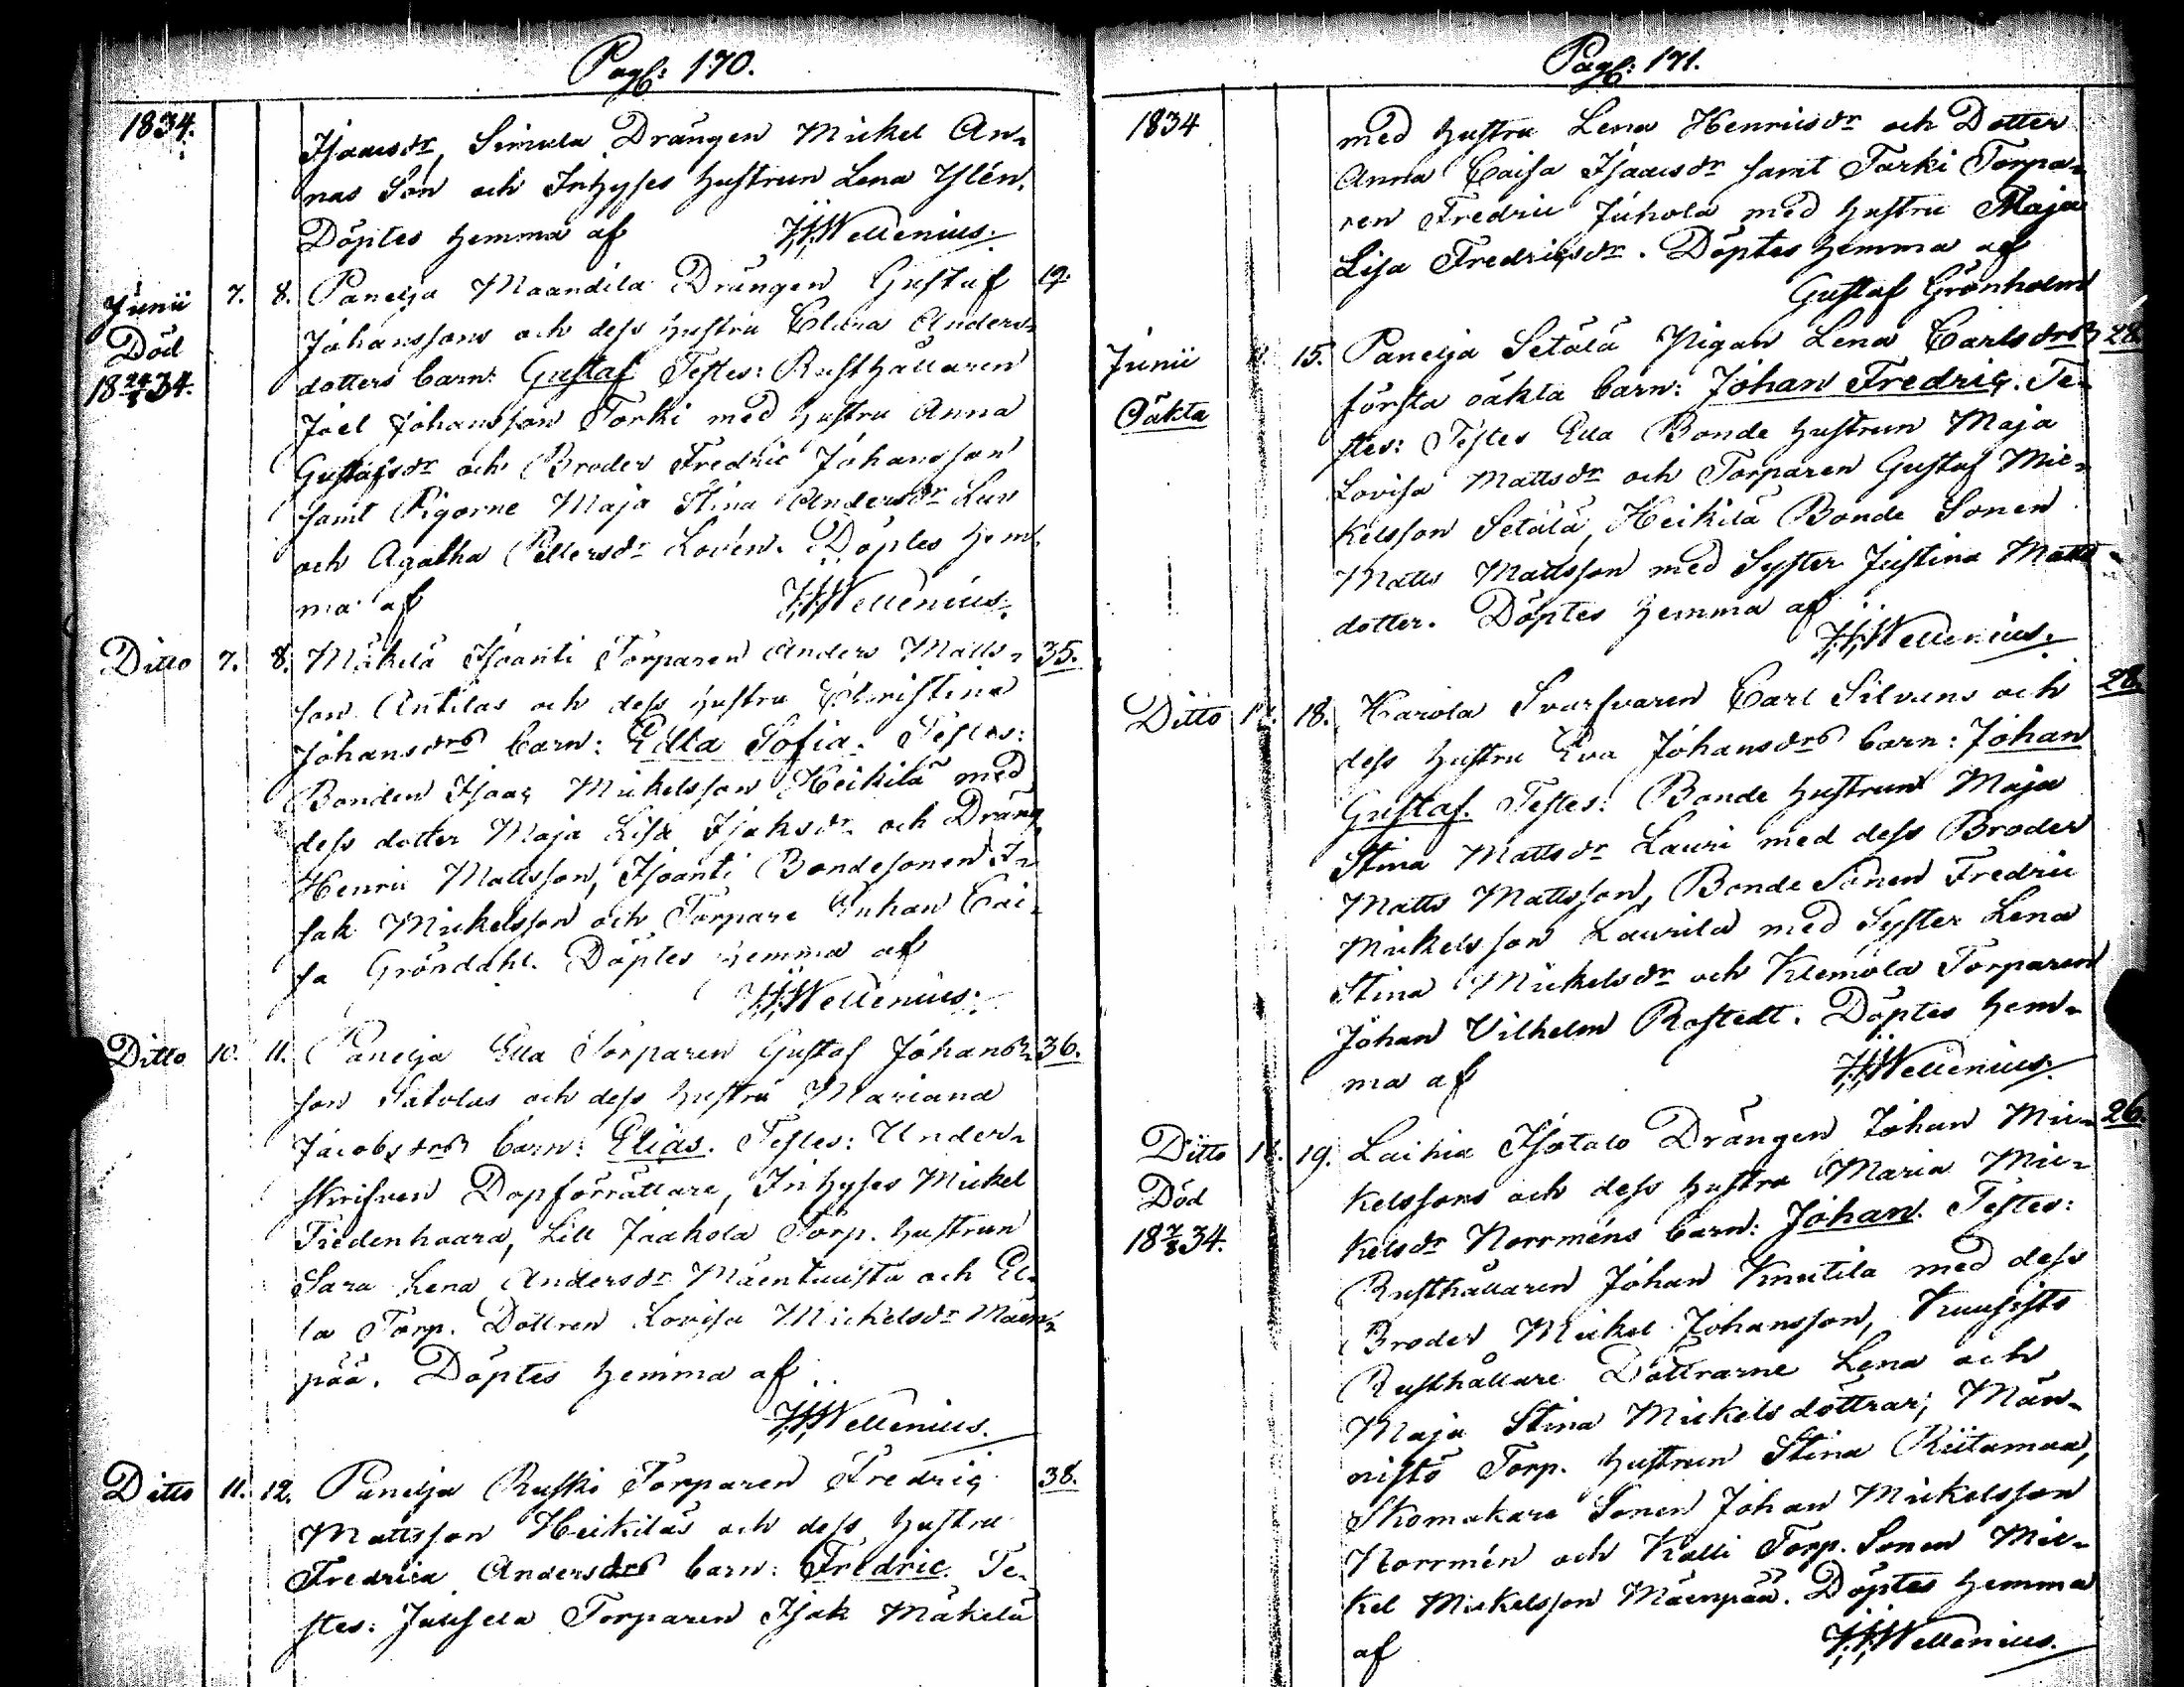 Pag: 170.
1834.
Isaacsdr, Simula Drängen Mickel An-
nas Son och Inhyses hustrun Lena Ylén.
Döptes hemma af J.J.Wellenius.
Junii 7. 8. Panelja Maandila Drängen Gustaf 19.
Död Johanssons och dess hustru Clara Anders-
18 24/8 34. dotters barn: Gustaf Testes: Rusthållaren
Joel Johansson Torki med hustru Anna
Gustafsdr och Broder Fredric Johansson
samt Pigorne Maja Stina Andersdr
och Agatha Pettersdr Lovén. Döptes hem-
ma af J.J.Wellenius.
Ditto 7. 8. Mäkelä Isoanti Torparen Anders Matts- 35.
son Antilas och dess hustru Christina
Johansdrs barn: Edla Sofia. Testes:
Bonden Isaac Mickelsson Heikilä med
dess dotter Maja Lisa Isaksdr och Dräng
Henric Mattsson, Isoanti Bondesonen I-
sak Mickelsson och Torpare Enkan Cai-
sa Gröndahl. Döptes hemma af
J.J.Wellenius.
Ditto 10. 11. Panelja Ella Torparen Gustaf Johans- 36.
son Satolas och dess hustru Mariana
Jacobsdrs barn: Elias. Testes: Under-
skrifven Dopförrättare, Inhyses Mickel
Tiedenhaara, Lill Jaakola Torp. hustrun
Sara Lena Andersdr Mäentausta och El-
la Torp. Dottren Lovisa Mickelsdr Mäen-
pää. Döptes hemma af
J.J.Wellenius.
Ditto 11. 12. Panelja Ruski Torparen Fredric 38.
Mattsson Heikiläs och dess hustru
Fredrica Andersdrs barn: Fredric. Te-
stes: Juksela Torparen Isak Mäkelä
Pag: 171.
1834
med hustru Lena Henricsdr och Dotter
Anna Caisa Isaacsdr samt Torki Torpa-
ren Fredric Juhola med hustru Maja
Lisa Fredricsdr. Döptes hemma af
Gustaf Grönholm
Junii 15. Panelja Setälä Pigan Lena Carlsdrs 28.
Oäkta första oäkta barn: Johan Fredric. Te-
stes: Testes Ella Bonde hustrun Maja
Lovisa Mattsdr och Torparen Gustaf Mic-
kelsson Setälä, Heikilä Bonde Sonen
Matts Mattsson med Syster Justina Matts-
dotter. Döptes hemma af
J.J.Wellenius.
Ditto 18. Karola Svarfvaren Carl Silvans och 28.
dess hustru Eva Johansdrs barn: Johan
Gustaf. Testes: Bonde hustrun Maja
Stina Mattsdr Lauri med dess Broder
Matts Mattsson, Bonde Sonen Fredric
Mickelsson Laurila med Syster Lena
Stina Mickelsdr och Klemola Torparen
Johan Vilhelm Rostedt. Döptes hem-
ma af J.J.Wellenius.
Ditto 19. Laihia Isotalo Drängen Johan Mic- 26.
Död kelssons och dess hustru Maria Mic-
18 7/8 34. kelsdr Norrméns barn: Johan. Testes:
Rusthållaren Johan Knutila med dess
Broder Mickel Johansson, Kuusisto
Rusthållare Döttrarne Lena och
Maja Stina Mickelsdöttrar, Män-
nistö Torp. hustrun Stina Riitamaa,
Skomakare Sonen Johan Mickelsson
Norrmén och Kalli Torp. Sonen Mic-
kel Mickelsson Mäenpää. Döptes hemma
af J.J.Wellenius.